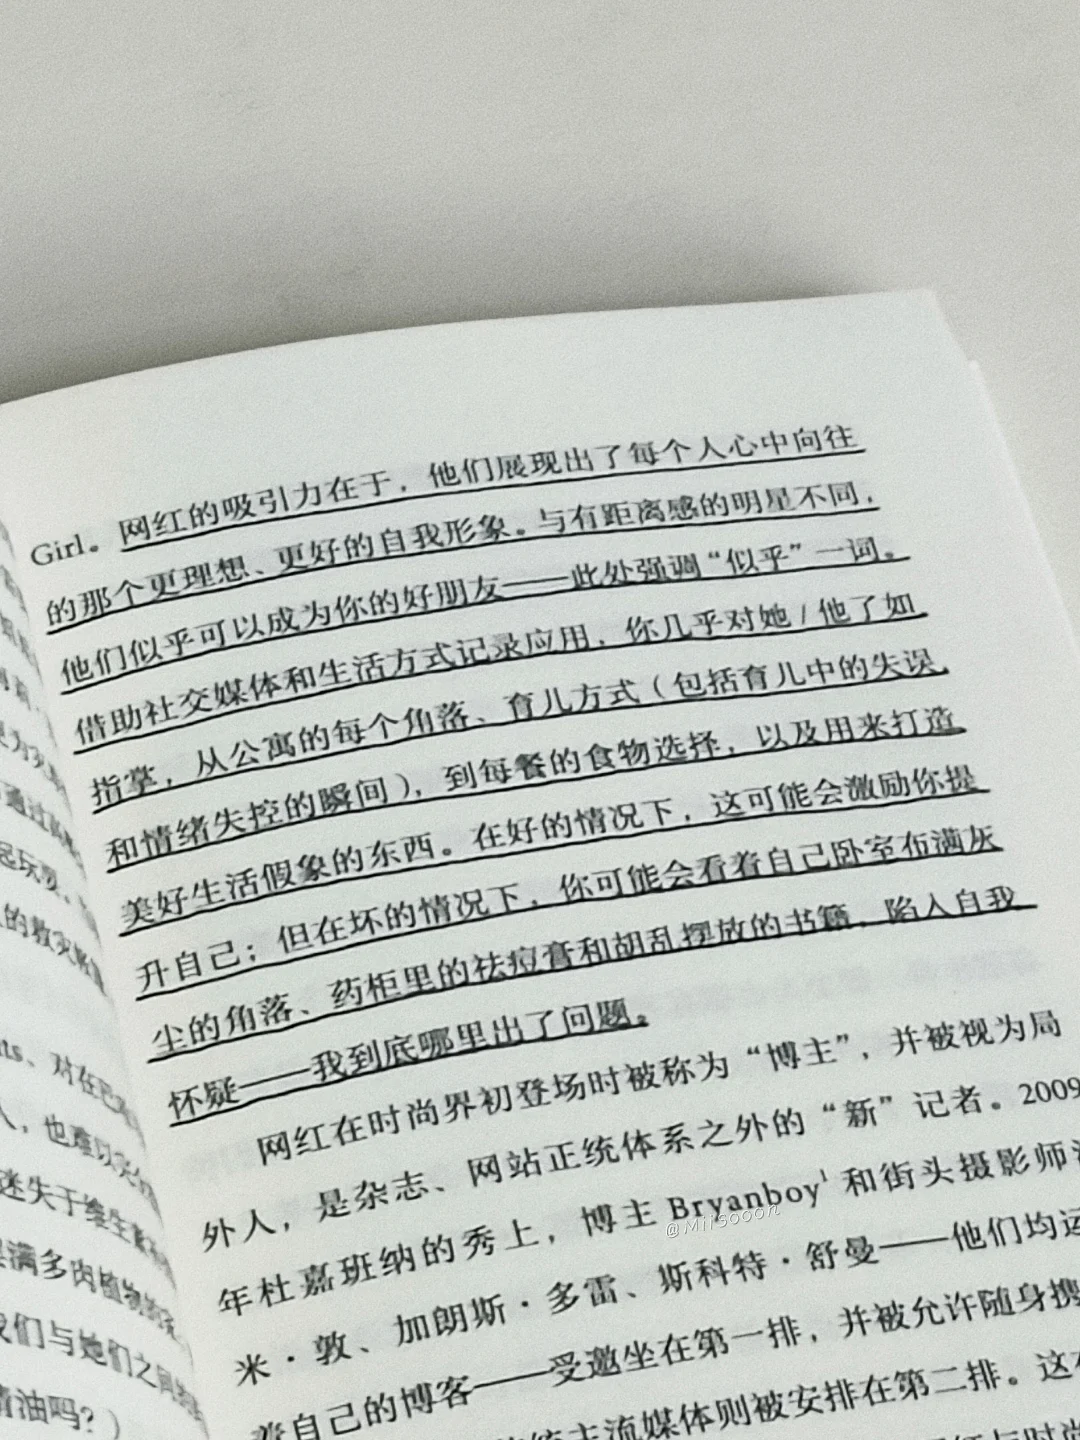 Girl。网红的吸引力在于，他们展现出了每个人心中向往
的那个更理想、更好的自我形象。与有距离感的明星不同，
他们似乎可以成为你的好朋友——此处强调“似乎”一词。
借助社交媒体和生活方式记录应用，你几乎对她/他了如
指掌，从公寓的每个角落、育儿方式（包括育儿中的失误
和情绪失控的瞬间），到每餐的食物选择，以及用来打造
美好生活假象的东西。在好的情况下，这可能会激励你提
升自己；但在坏的情况下，你可能会看着自己卧室布满灰
尘的角落、药柜里的祛痘膏和胡乱摆放的书籍，陷入自我
怀疑——我到底哪里出了问题。
网红在时尚界初登场时被称为“博主”，并被视为局
外人，是杂志、网站正统体系之外的“新”记者。2009
年杜嘉班纳的秀上，博主 Bryanboy¹ 和街头摄影师
米·敦、加朗斯·多雷、斯科特·舒曼——他们均运
着自己的博客——受邀坐在第一排，并被允许随身携
统主流媒体则被安排在第二排。这
@MiiSooon
nts、对在巴
人，也难以
迷失于维生素
满多肉植物的
我们与她们之间
精油吗？）